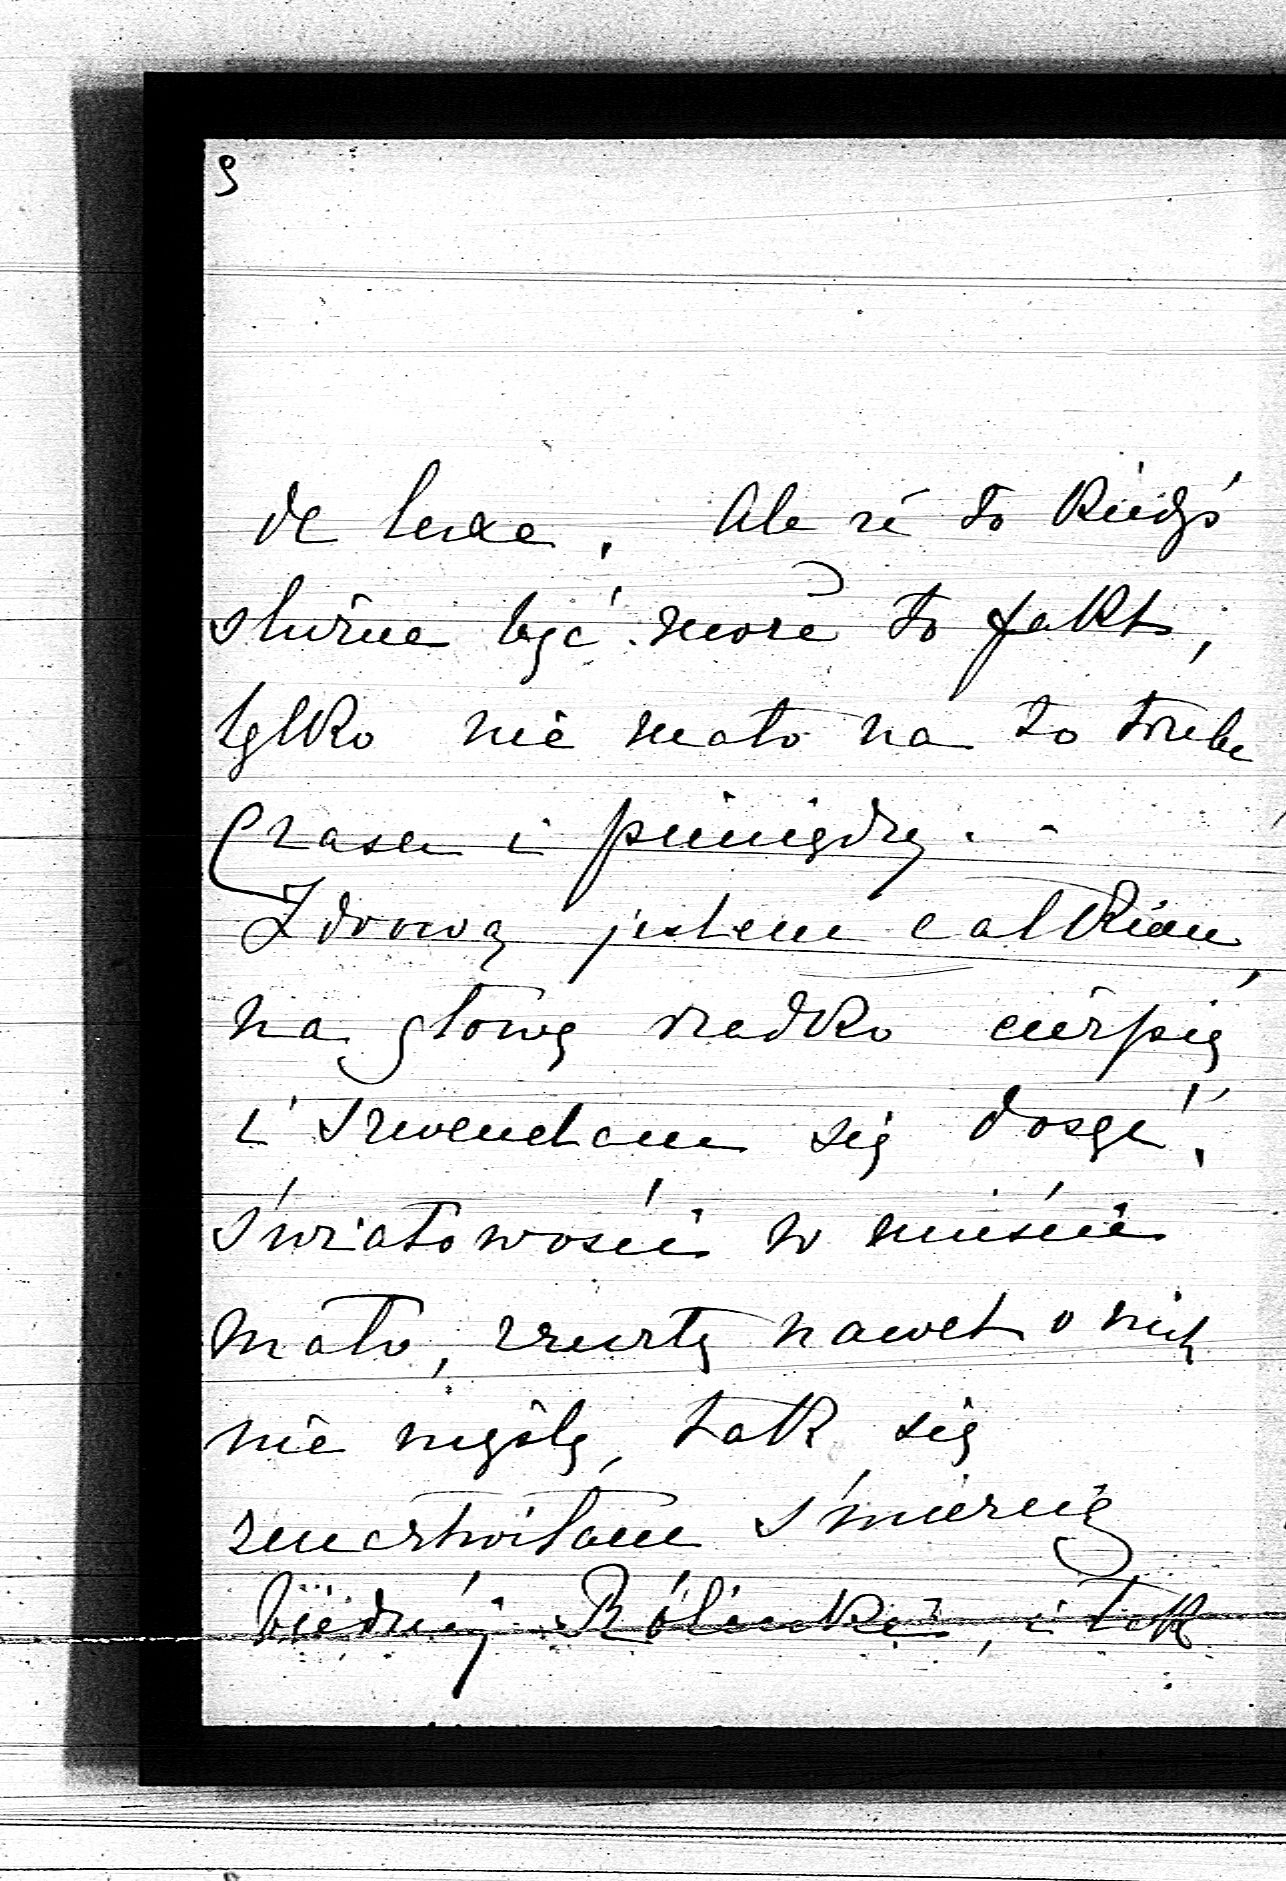 9
de luxe. Ale że to kiedyś
słuźne być może to fakt,
tylko nie mało na to trzeba
czasu i pieniędzy. -
Zdrową jestem całkiem,
na głowę rzadko cierpię
i szwendam się dosyć.
Światowości w mieście
mało, zresztą nawet o nich
nie myślę, tak się
zmartwiłam śmiercią
biednej Rólinki, i tak